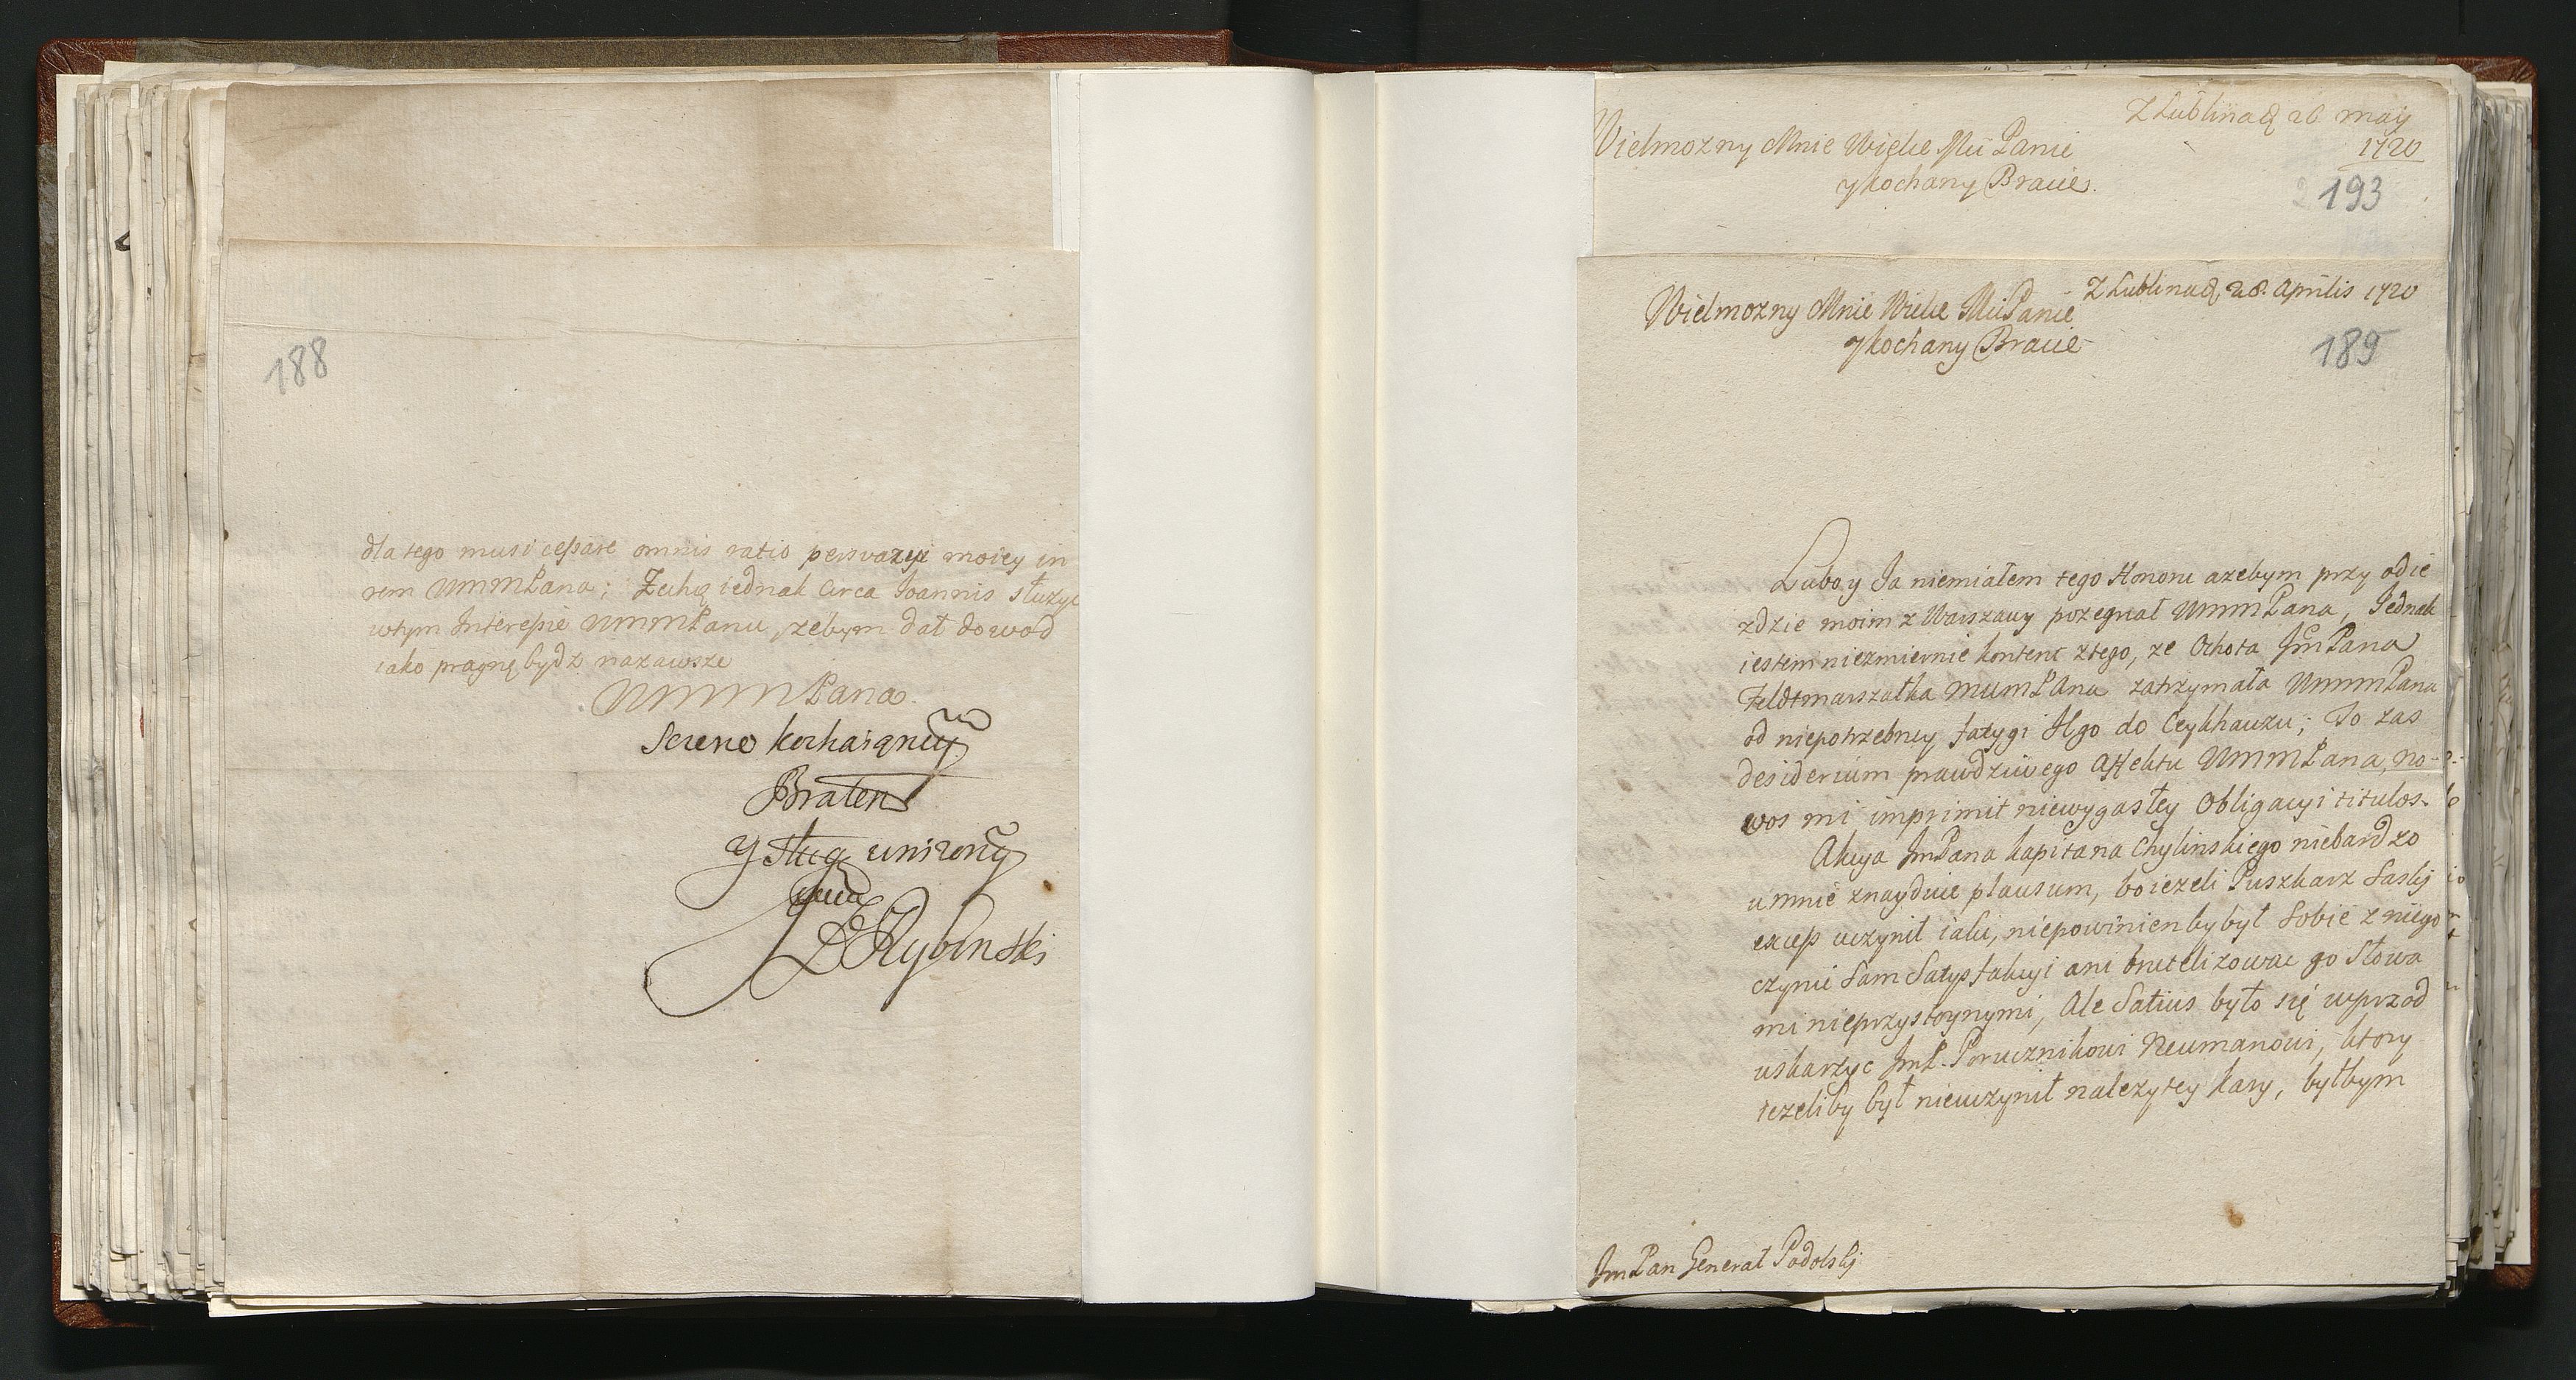 188
dla tego musi cessare omnis ratio perswazyi moiey in
rem WMMPana; Zechcę iednak circa Joannis służyc
wtym Interessie WMMPanu, zebym dał dowod
iako pragnę bydz nazawsze
WMMPana
Szczerze kochaiącym
Bratem
y sługą unizonym
Rybinski
ZLublina d 26 maij
1720
Wielmozny Mnie Wielce Mci Panie
y kochany Bracie
193
ZLublina d 28. Aprilis 1720
Wielmozny Mnie Wielce Mci Panie
y kochany Bracie
189
Lubo y Ja niemiałem tego Honoru azebym przy odie
zdzie moim z Warszawy pozegnał WMMPana, Jednak
iestem niezmiernie kontent ztego, ze Ochota JmPana
Feldtmarszałka zatrzymała WMMPana
od niepotrzebney fatygi do Ceykhauzu; To zas
desiderium prawdziwego Affektu WMMPana, no-
wos mi imprimit niewygasłey Obligacyi titulos.
Akcya JmPana kapitana Chylinskiego niebardzo
umnie znayduie plausum, bo iezeli Puszkarz Saski
excess uczynił iaki, niepowinien by był Sobie z niego
czynic Sam Satysfakcyi ani brutelizowac go Słowa
mi nieprzystoynymi, Ale Satius było się wprzod
uskarzyc JmP. Porucznikowi Neumanowi, ktory
iezeliby był nieuczynił nalezytey kary, byłbym
JmPan Generał Podolski